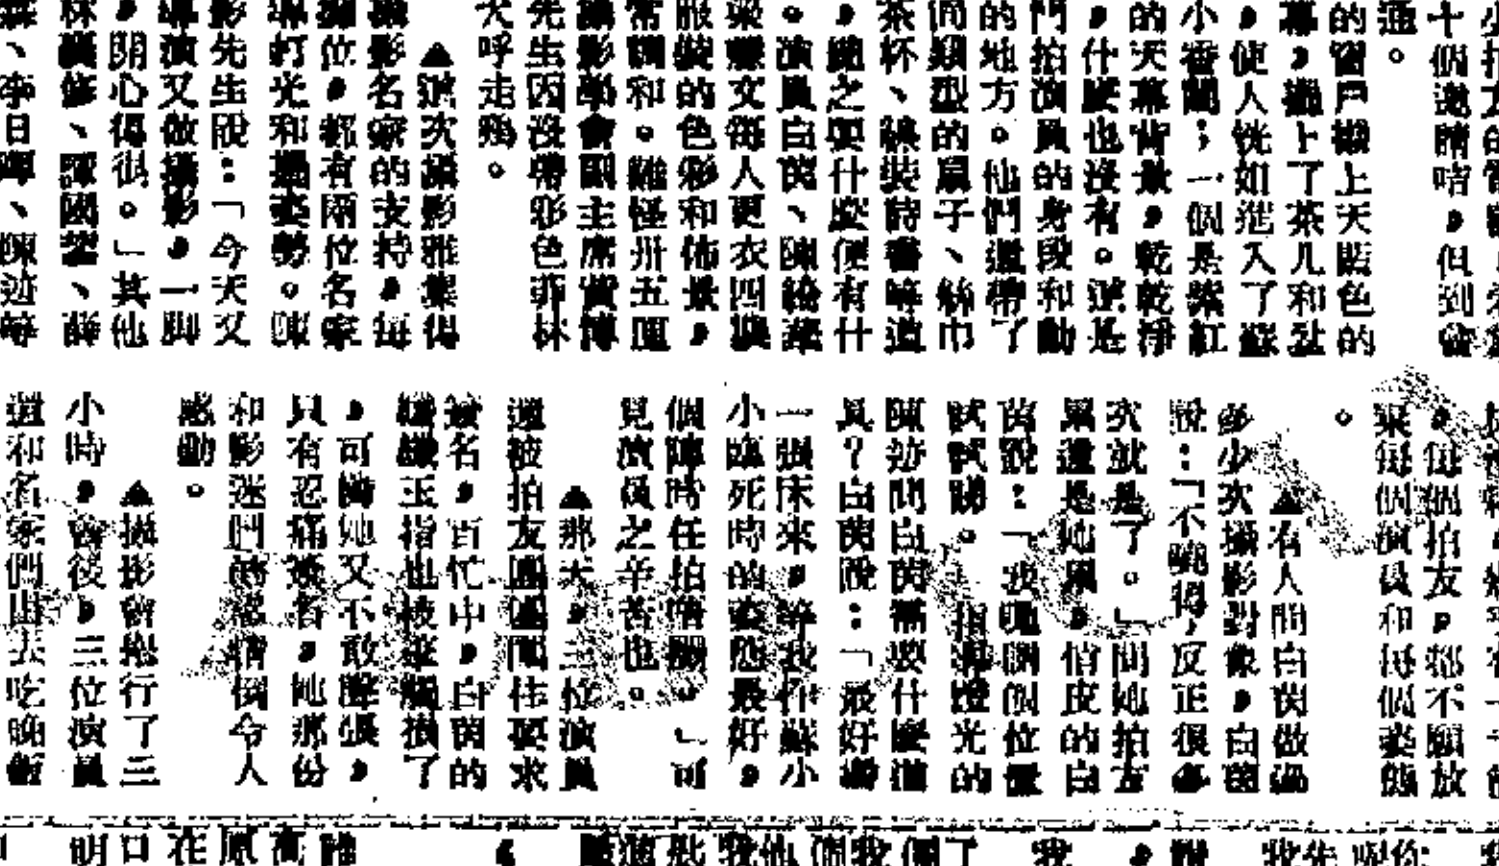 十個邀請咭,但到會
通。
的窗戶襯上天藍色的
幕,擺上了茶几和盆
,使人恍如進入了蘇
小香閨;一個是紫紅
的天幕背景,乾乾淨
,什麼也沒有。這是
門拍演員的身段和動
的地方。他們還帶了
同類型的扇子、絲巾
茶杯、線裝詩書等道
,總之要什麼便有什
。演員白茵、陳綺華
梁慧文每人更衣四襲
服裝的色彩和佈景,
常調和。難怪卅五匣
攝影學會副主席黃博
先生因沒帶彩色菲林
大呼走鷄。
▲這次攝影雅集得
攝影名家的支持,每
攤位,都有兩位名家
導打光和擺姿勢。陳
影先生說:「今天又
導演又做攝影,一脚
,開心得很。」其他
、譚國基、薛
森、李日暉、陳迹等
,每個拍友,都不願放
棄每個演員和每個姿態
。
▲有人問白茵做過
多少次攝影對像,白茵
說:「不曉得,反正很多
次就是了。」問她拍友
累還是她累,俏皮的白
茵說:「我哋調個位置
試試睇。」指導燈光的
陳跡問白茵需要什麼道
具?白茵說:「最好攪
一張床來,等我作蘇小
小臨死時的姿態最好,
個陣時任拍唔嬲。」可
見演員之辛苦也。
▲那天,三位演員
還被拍友團團圍住要求
簽名,百忙中,白茵的
纖纖玉指也被筆觸損了
,可憐她又不敢聲張,
只有忍痛簽名,她那份
和影迷們的感情倒令人
感動。
▲攝影會舉行了三
小時,會後,三位演員
還和名家們出去吃晚飯